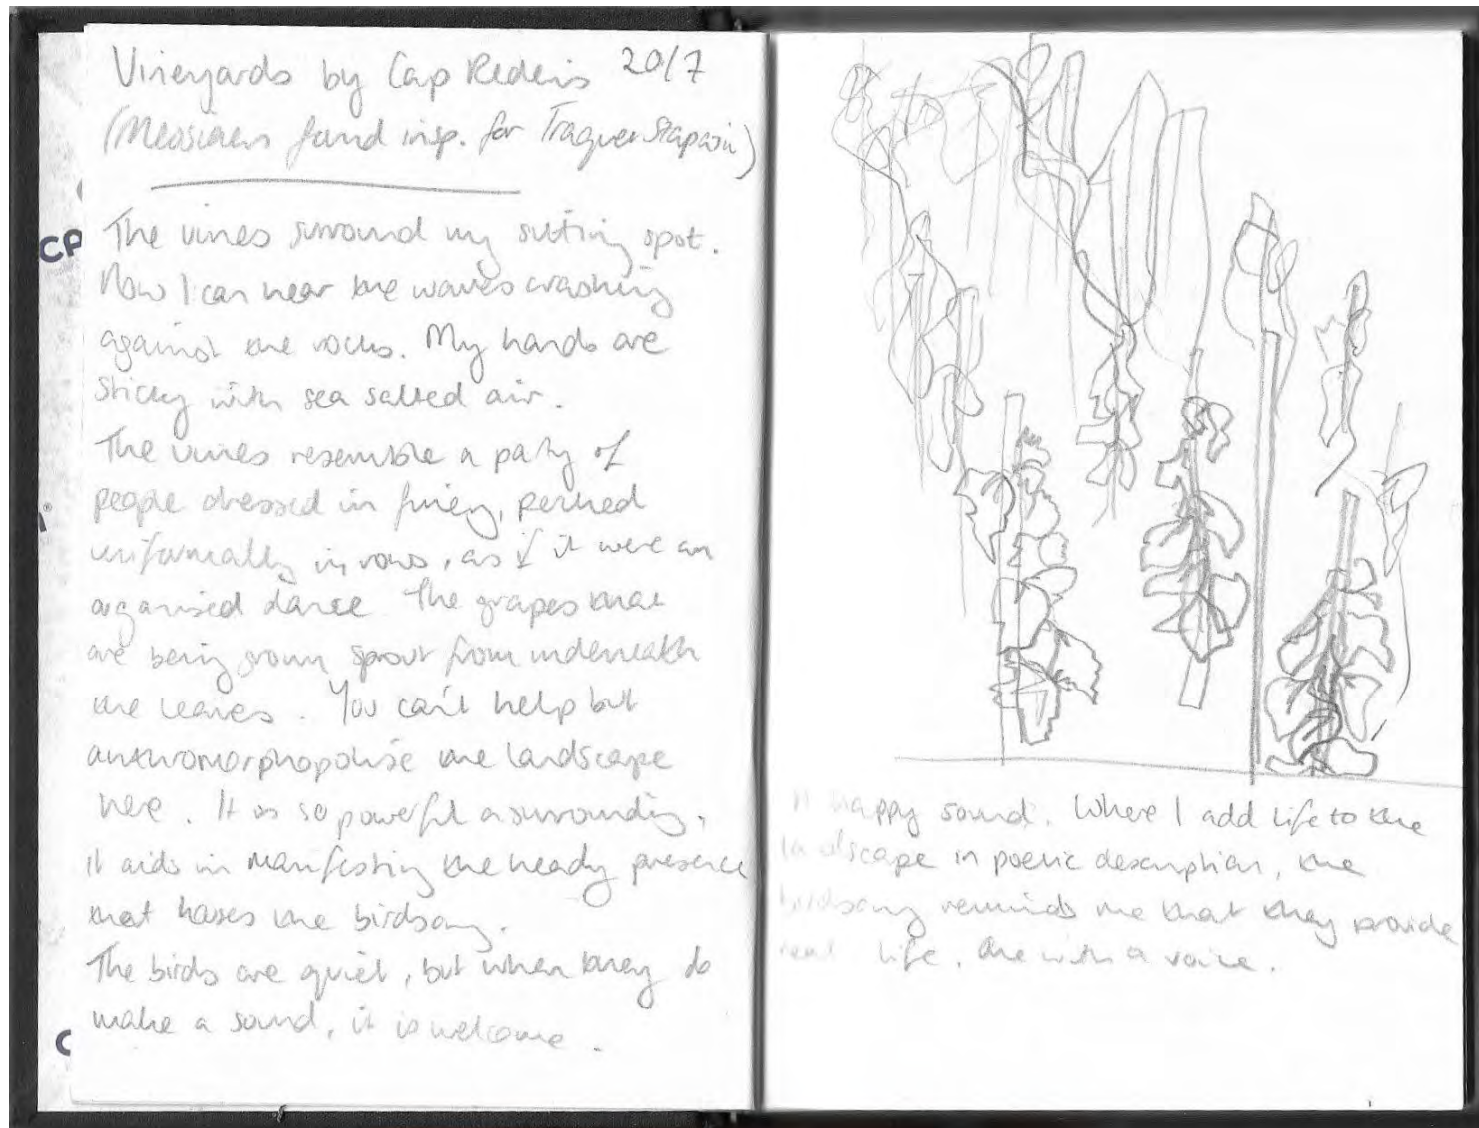 Vineyards by Cap Rederis 20/7
(Messiaen found insp. for Traquet Stapazin)
The vines surround my sitting spot.
Now I can hear the waves crashing
against the rocks. My hands are
sticky with sea salted air.
The vines resemble a party of
people dressed in finery, perched
uniformally in rows, as if it were an
organised dance. The grapes that
are being grown sprout from underneath
the leaves. You can't help but
anthromorphopolise the landscape
here. It is so powerful a surrounding,
it aids in manifesting the heady presence
that houses the birdsong.
The birds are quiet, but when they do
make a sound, it is welcome.
A happy sound. Where I add life to the
landscape in poetic description, the
birdsong reminds me that they provide
real life. One with a voice.
CA
C